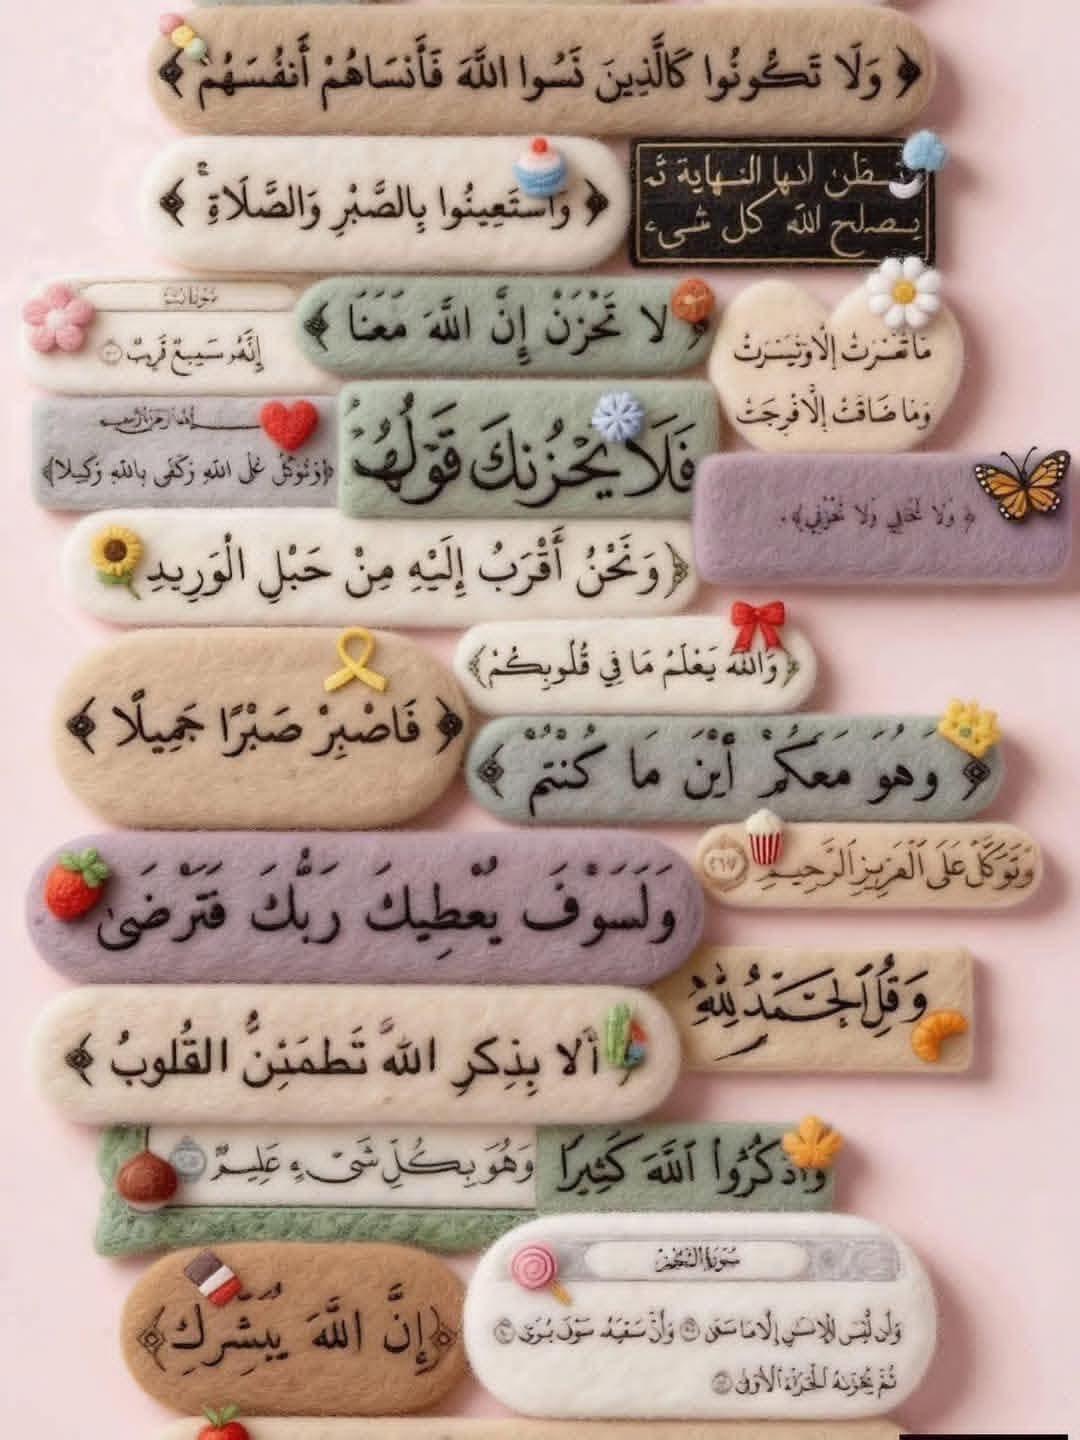 ﴿ وَلَا تَكُونُوا كَالَّذِينَ نَسُوا اللَّهَ فَأَنسَاهُمْ أَنفُسَهُمْ ﴾
﴿ وَاسْتَعِينُوا بِالصَّبْرِ وَالصَّلَاةِ ﴾
تظن انها النهاية ثم
يصلح الله كل شيء
لَا تَحْزَنْ إِنَّ اللَّهَ مَعَنَا ﴾
إِنَّهُ سَمِيعٌ قَرِيبٌ
مَا تَعَسَّرَتْ إِلَّا وَتَيَسَّرَتْ
وَمَا ضَاقَتْ إِلَّا فُرِجَتْ
﴿وَتَوَكَّلْ عَلَى اللَّهِ وَكَفَى بِاللَّهِ وَكِيلًا﴾
فَلَا يَحْزُنكَ قَوْلُهُمْ
﴿ وَلَا تَخَافِي وَلَا تَحْزَنِي ﴾.
﴿وَنَحْنُ أَقْرَبُ إِلَيْهِ مِنْ حَبْلِ الْوَرِيدِ
﴿وَاللَّهُ يَعْلَمُ مَا فِي قُلُوبِكُمْ﴾
﴿ فَاصْبِرْ صَبْرًا جَمِيلًا ﴾
﴿ وَهُوَ مَعَكُمْ أَيْنَ مَا كُنْتُمْ ﴾
وَتَوَكَّلْ عَلَى الْعَزِيزِ الرَّحِيمِ ٢١٧
وَلَسَوْفَ يُعْطِيكَ رَبُّكَ فَتَرْضَىٰ
وَقُلِ الْحَمْدُ لِلَّهِ
أَلَا بِذِكْرِ اللَّهِ تَطْمَئِنُّ الْقُلُوبُ ﴾
وَهُوَ بِكُلِّ شَيْءٍ عَلِيمٌ
وَاذْكُرُوا اللَّهَ كَثِيرًا
﴿إِنَّ اللَّهَ يُبَشِّرُكِ﴾
سُورَةُ النَّجْمِ
وَأَن لَّيْسَ لِلْإِنسَانِ إِلَّا مَا سَعَىٰ وَأَنَّ سَعْيَهُ سَوْفَ يُرَىٰ
ثُمَّ يُجْزَاهُ الْجَزَاءَ الْأَوْفَىٰ